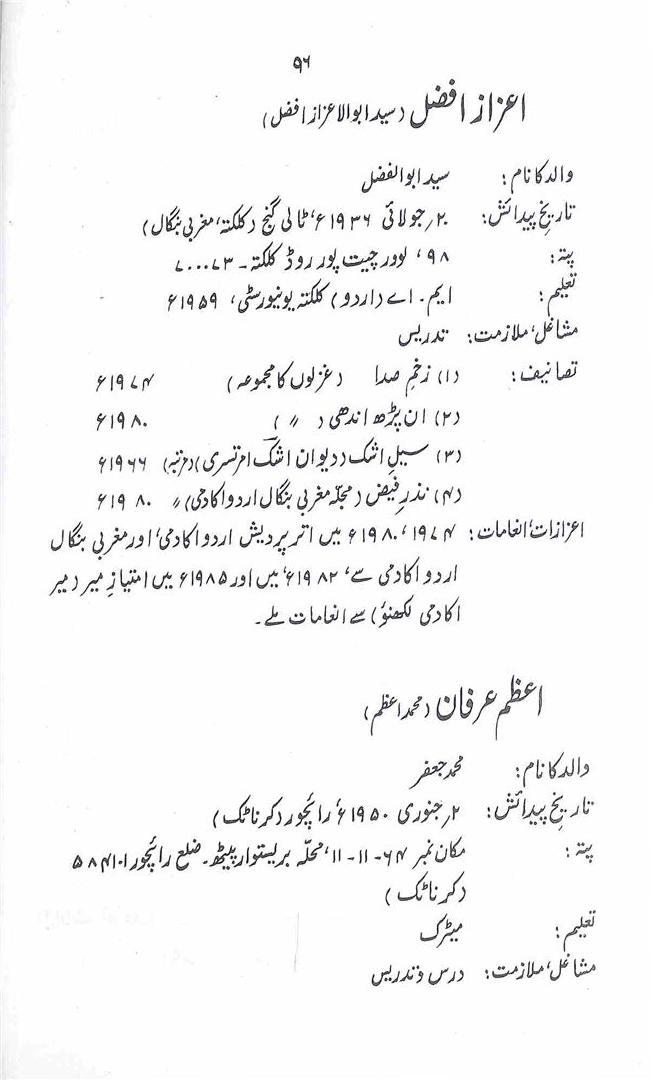 ۹۶
اعزاز افضل (سید ابوالاعزاز افضل)
والد کا نام: سید ابوالفضل
تاریخِ پیدائش: ۲؍جولائی ۱۹۳۶ء، ٹالی گنج (کلکتہ، مغربی بنگال)
پتہ: ۹۸، لوور چیت پور روڈ کلکتہ۔ ۷۰۰۰۷۳
تعلیم: ایم۔ اے (اردو) کلکتہ یونیورسٹی، ۱۹۵۹ء
مشاغل، ملازمت: تدریس
تصانیف: (۱) زخمِ صدا (غزلوں کا مجموعہ) ۱۹۷۴ء
(۲) ان پڑھ اندھی ( 〃 ) ۱۹۸۰ء
(۳) سیلِ اشک (دیوان اشکؔ امرتسری) (مرتبہ) ۱۹۶۶ء
(۴) نذرِ فیض (مجلّہ مغربی بنگال اردو اکادمی) 〃 ۱۹۸۰ء
اعزازات، انعامات: ۱۹۷۴، ۱۹۸۰ء میں اتر پردیش اردو اکادمی، اور مغربی بنگال
اردو اکادمی سے، ۱۹۸۲ء، میں اور ۱۹۸۵ء میں امتیازِ میر (میر
اکادمی لکھنؤ) سے انعامات ملے۔
اعظم عرفان (محمد اعظم)
والد کا نام: محمد جعفر
تاریخِ پیدائش: ۲؍جنوری ۱۹۵۰ء، رائچور (کرناٹک)
پتہ: مکان نمبر ۶۴-۱۱-۱۱، محلّہ بریستوار پیٹھ۔ ضلع رائچور ۵۸۴۱۰۱
(کرناٹک)
تعلیم: میٹرک
مشاغل، ملازمت: درس و تدریس